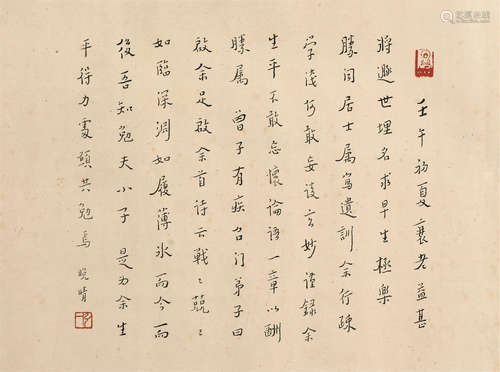 壬午初夏衰老益甚
將遯世埋名求早生極樂
勝同居士属寫遺訓余行疎
學淺何敢妄談玄妙謹録余
生平不敢忘懷論語一章以酬
勝属 曾子有疾召门弟子曰
啟余足啟余首诗云戰〻兢〻
如臨深淵如履薄冰而今而
後吾知勉夫小子 是为余生
平得力處願共勉焉 晚晴